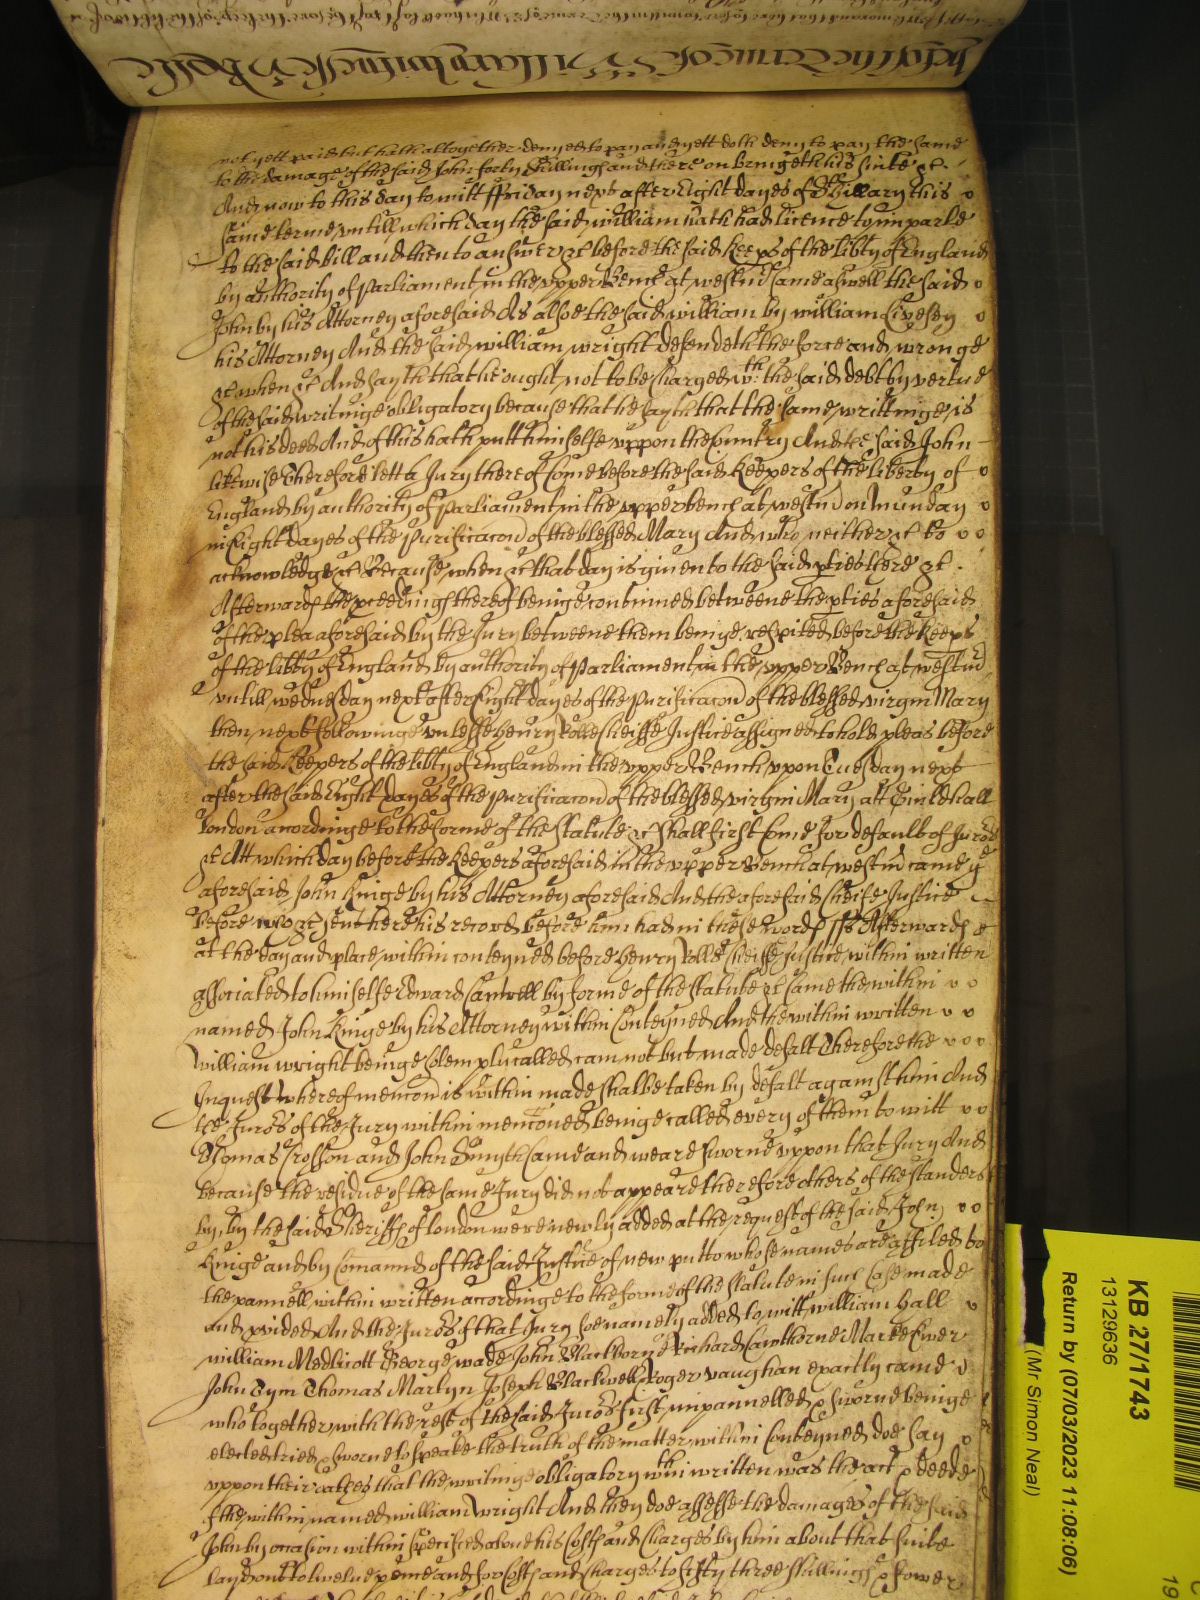 yet of the Terme of St Hillary witnesse H Rolle
not yett paid but hath altogether denyed to pay and yett doth deny to pay the same
to the damage of the said John forty shillings and there on bringeth his suite &c.
And now to this day to witt ffriday next after Eight dayes of St Hillary this
same terme untill which day the said william hath had licence to imparle
to the said bill and then to answer &c before the said Keeps of the libty of England
by authority of Parliament in the upper Bench at westm came aswell the said
John by his Attorney aforesaid As alsoe the said william by william Livesey
his Attorney And the said william wright defendeth the force and wronge
&c when &c And sayth that he ought not to be charged wth the said debt by vertue
of the said writinge obligatory because that he sayth that the same writtinge is
not his deed And of this hath putt himselfe uppon the Cuntry And the said John
likewise Therefore lett a Jury thereof Come before the said Keepers of the liberty of
England by authority of Parliament in the upper bench at westm on munday
in Eight dayes of the Purificacon of the blessed Mary And who neither &c to
acknowledge &c Because when &c that day is given to the said pties there &c.
Afterwards the pceedings thereof beinge continued betweene the pties aforesaid
of the plea aforesaid by the Jury betweene them beinge respited before the Keeps
of the libty of England by authority of Parliament in the upper Bench at westm
untill wednesday next after Eight dayes of the Purificacon of the blessed virgin Mary
then next followinge unlesse Henry Rolle Cheiffe Justice assigned to hold pleas before
the said Keepers of the libty of England in the upper Bench uppon Tuesday next
after the said Eight dayes of the Purificacon of the blessed virgin Mary att Guildhall
London accordinge to the forme of the statute &c shall first Come for default of Jurors
&c Att which day before the Keepers aforesaid in the upper Bench at westm came ye
aforesaid John Kinge by his Attorney aforesaid And the aforesaid Cheife Justice
before who &c sent here his record before him had in these words ss Afterwards
at the day and place within conteyned before Henry Rolle Cheiffe Justice within written
associated to himselfe Edward Cantwell by forme of the statute &c came the within
named John Kinge by his Attorney within Conteyned And the within written
William wright beinge solemply called cam not but made defalt Therefore the
Inquest whereof mencon is within made shalbe taken by defalt against him And
the Jurors of the Jury within menconed beinge called every of them to witt
Thomas Crosson and John Smyth Came and weare sworne uppon that Jury And
because the residue of the same Jury did not appeare therefore others of the standers
by, by the said Sheriffs of london were newly added at the request of the said John
Kinge and by Comannd of the said Justice of new putt to whose names are affiled to
the pannell within written accordinge to the forme of the statute in such Case made
and pvided And the Jurors of that Jury soe namely added to witt william Hall
william Medlicott George wade John Blackborne Richard Cawthorne Marke Ewer
John Tym Thomas Martyn Joseph Blackwell Roger vaughan exactly came
who together with the rest of the said Jurors first impannelled & sworne beinge
elected tried & sworne to speake the truth of the matter within Conteyned doe say
uppon their oathes that the writinge obligatory wthin written was the act & deede
of the within named william wright And they doe assesse the damages of the said
John by occasion within specified above his Costs and Charges by him about that suite
layd out to twelve pence and for Costs and Charges to fifty three shillings & fower
KB 27/1743
13129636
Return by (07/03/2023 11:08:06)
(Mr Simon Neal)